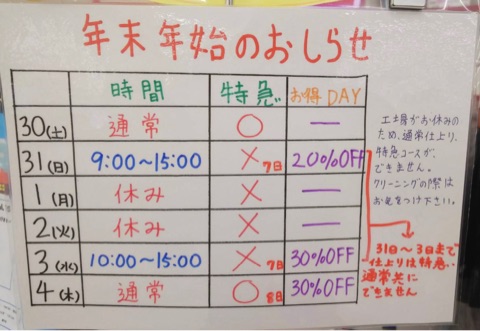 年末年始のおしらせ
時間 特急 お得DAY
30(土) 通常 ○ ー
31(日) 9:00〜15:00 ×7日 20%OFF
1(月) 休み × ー
2(火) 休み × ー
3(水) 10:00〜15:00 ×7日 30%OFF
4(木) 通常 ○8日 30%OFF
工場がお休みの
ため、通常仕上り、
特急コースが、
できません。
クリーニングの際は
お気をつけ下さい。
31日〜3日まで
仕上りは特急、
通常共に
できません